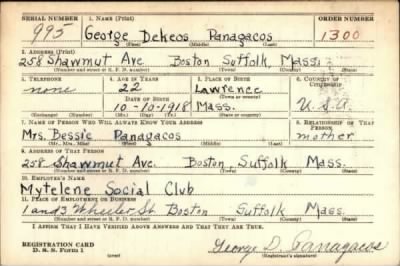 SERIAL NUMBER 1. NAME (Print) ORDER NUMBER
995 George Dekeos Panagacos 1300
(First) (Middle) (Last)
2. ADDRESS (Print)
258 Shawmut Ave Boston Suffolk, Mass.
(Number and street or R. F. D. number) (Town) (County) (State)
3. TELEPHONE 4. AGE IN YEARS 5. PLACE OF BIRTH 6. COUNTRY OF CITIZENSHIP
none 22 Lawrence
DATE OF BIRTH (Town or county)
10-10-1918 Mass. U.S.A.
(Exchange) (Number) (Mo.) (Day) (Yr.) (State or country)
7. NAME OF PERSON WHO WILL ALWAYS KNOW YOUR ADDRESS 8. RELATIONSHIP OF THAT PERSON
Mrs. Bessie Panagacos mother
(Mr., Mrs., Miss) (First) (Middle) (Last)
9. ADDRESS OF THAT PERSON
258 Shawmut Ave. Boston, Suffolk Mass.
(Number and street or R. F. D. number) (Town) (County) (State)
10. EMPLOYER'S NAME
Mytelene Social Club
11. PLACE OF EMPLOYMENT OR BUSINESS
1 and 3 Wheeler St. Boston Suffolk Mass.
(Number and street or R. F. D. number) (Town) (County) (State)
I AFFIRM THAT I HAVE VERIFIED ABOVE ANSWERS AND THAT THEY ARE TRUE.
REGISTRATION CARD
D. S. S. Form 1 (over) George D. Panagacos
(Registrant's signature)